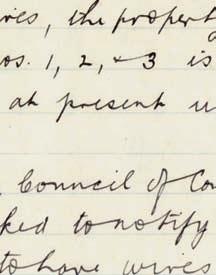 ires, the property
os. 1, 2, & 3 is
at present u
Council of Con
ked to notify
to have wires